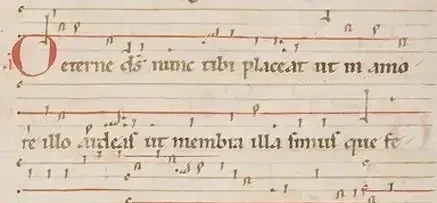 O eterne ds̄ nunc tibi placeat ut in amo
re illo ardeas ut membra illa simus que fe